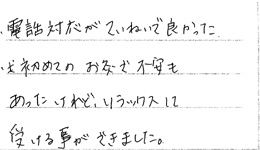 ・電話対応がていねいで良かった
・丈初めてのお灸で不安も
あったけれど、リラックスして
受ける事ができました。